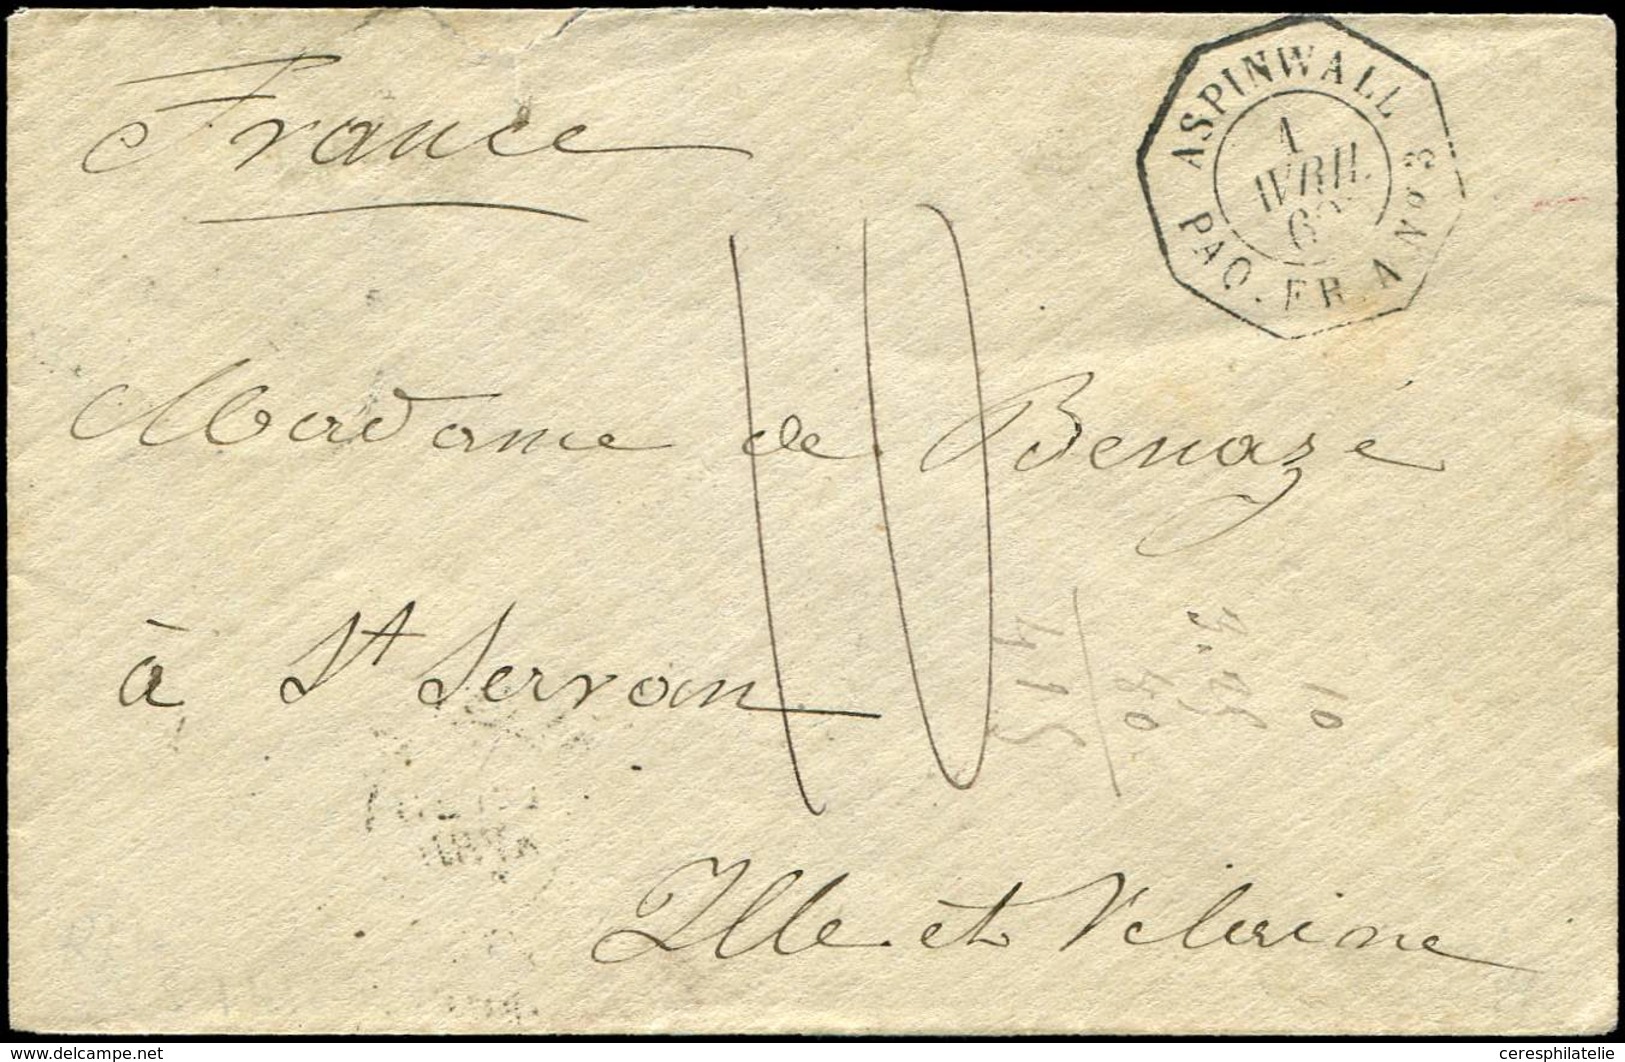 France
ASPINWALL
1
AVRIL
PAQ. FR. A Nº 3
10
Madame de Benazé
à St Servan
10
Ille et Vilaine
www.delcampe.net
ceresphilatelie